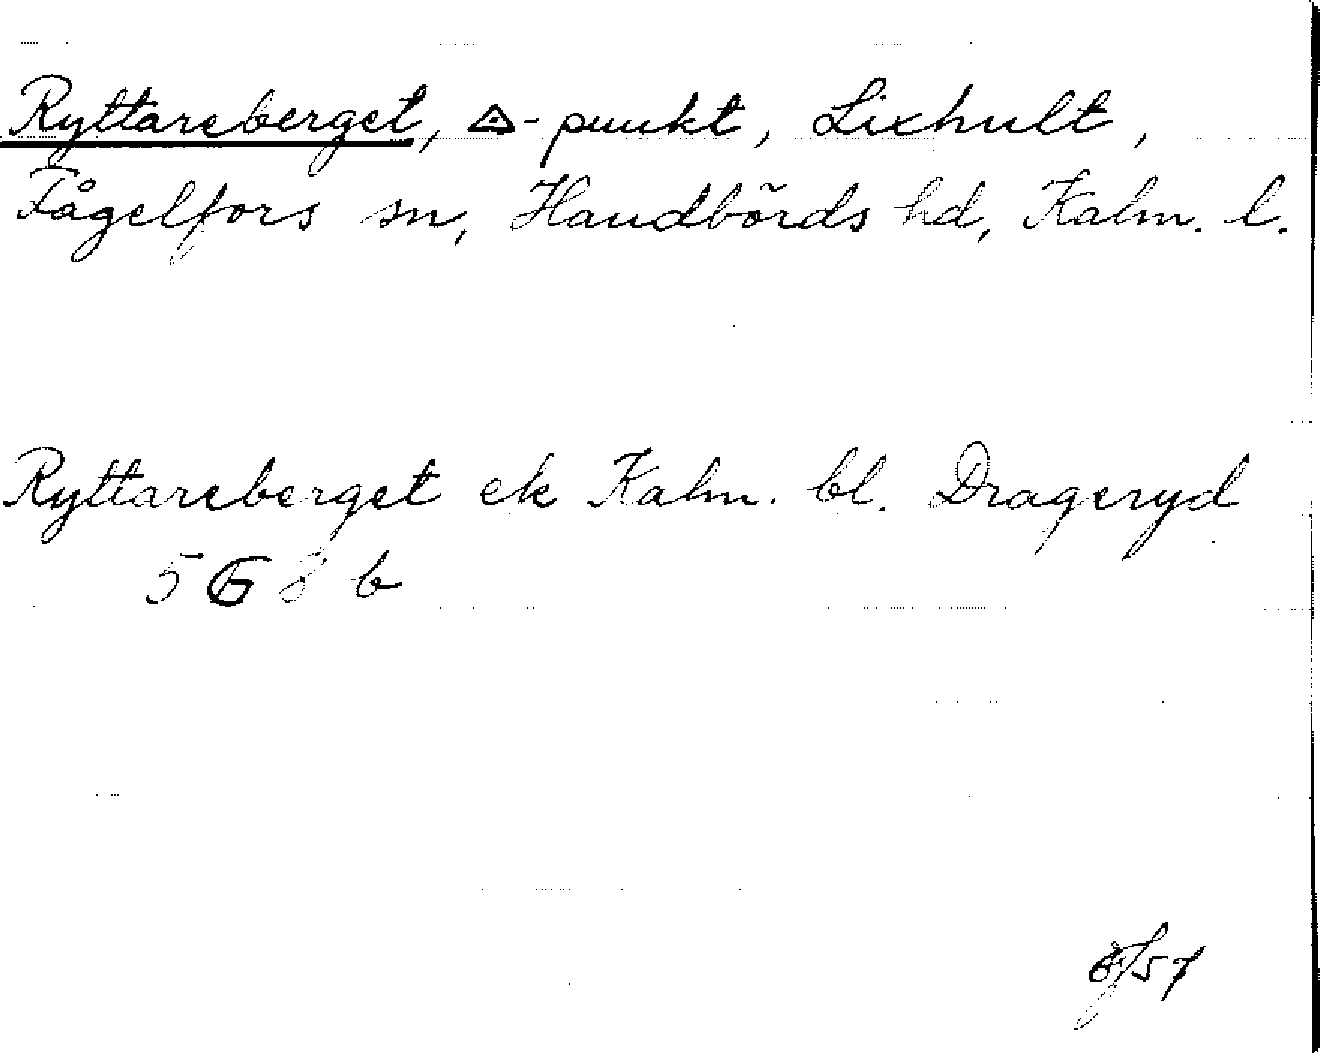 Ryttareberget, △-punkt, Lixhult,
Fågelfors sn, Handbörds hd, Kalm. l.
Ryttareberget ek Kalm. bl. Drageryd
5 G 8 b